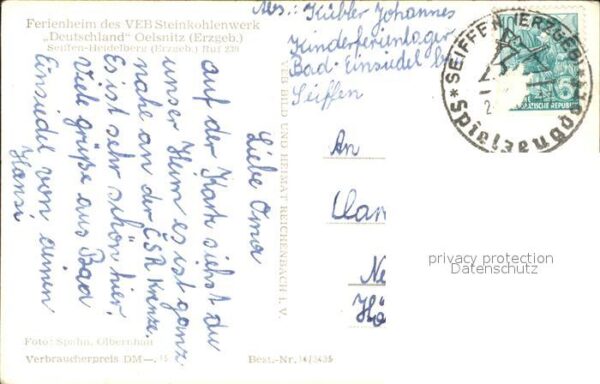 Ferienheim des VEB Steinkohlenwerk
„Deutschland" Oelsnitz (Erzgeb.)
Seiffen-Heidelberg (Erzgeb.) Ruf 239
Abs.: Kübler Johannes
Kinderferienlager
Bad-Einsiedel b.
Seiffen
SEIFFEN (ERZGEB)
Spielzeugdorf
Liebe Oma
auf der Karte siehst du
unser Heim es ist ganz
nahe an der ČSR Grenze.
Es ist sehr schön hier.
Viele grüße aus Bad
Einsiedel von deinen
Hansi
VEB BILD UND HEIMAT REICHENBACH I. V.
An
Ne
privacy protection
Datenschutz
Foto: Spahn, Olbernhau
Verbraucherpreis DM —.15
Best.-Nr. 14/3435